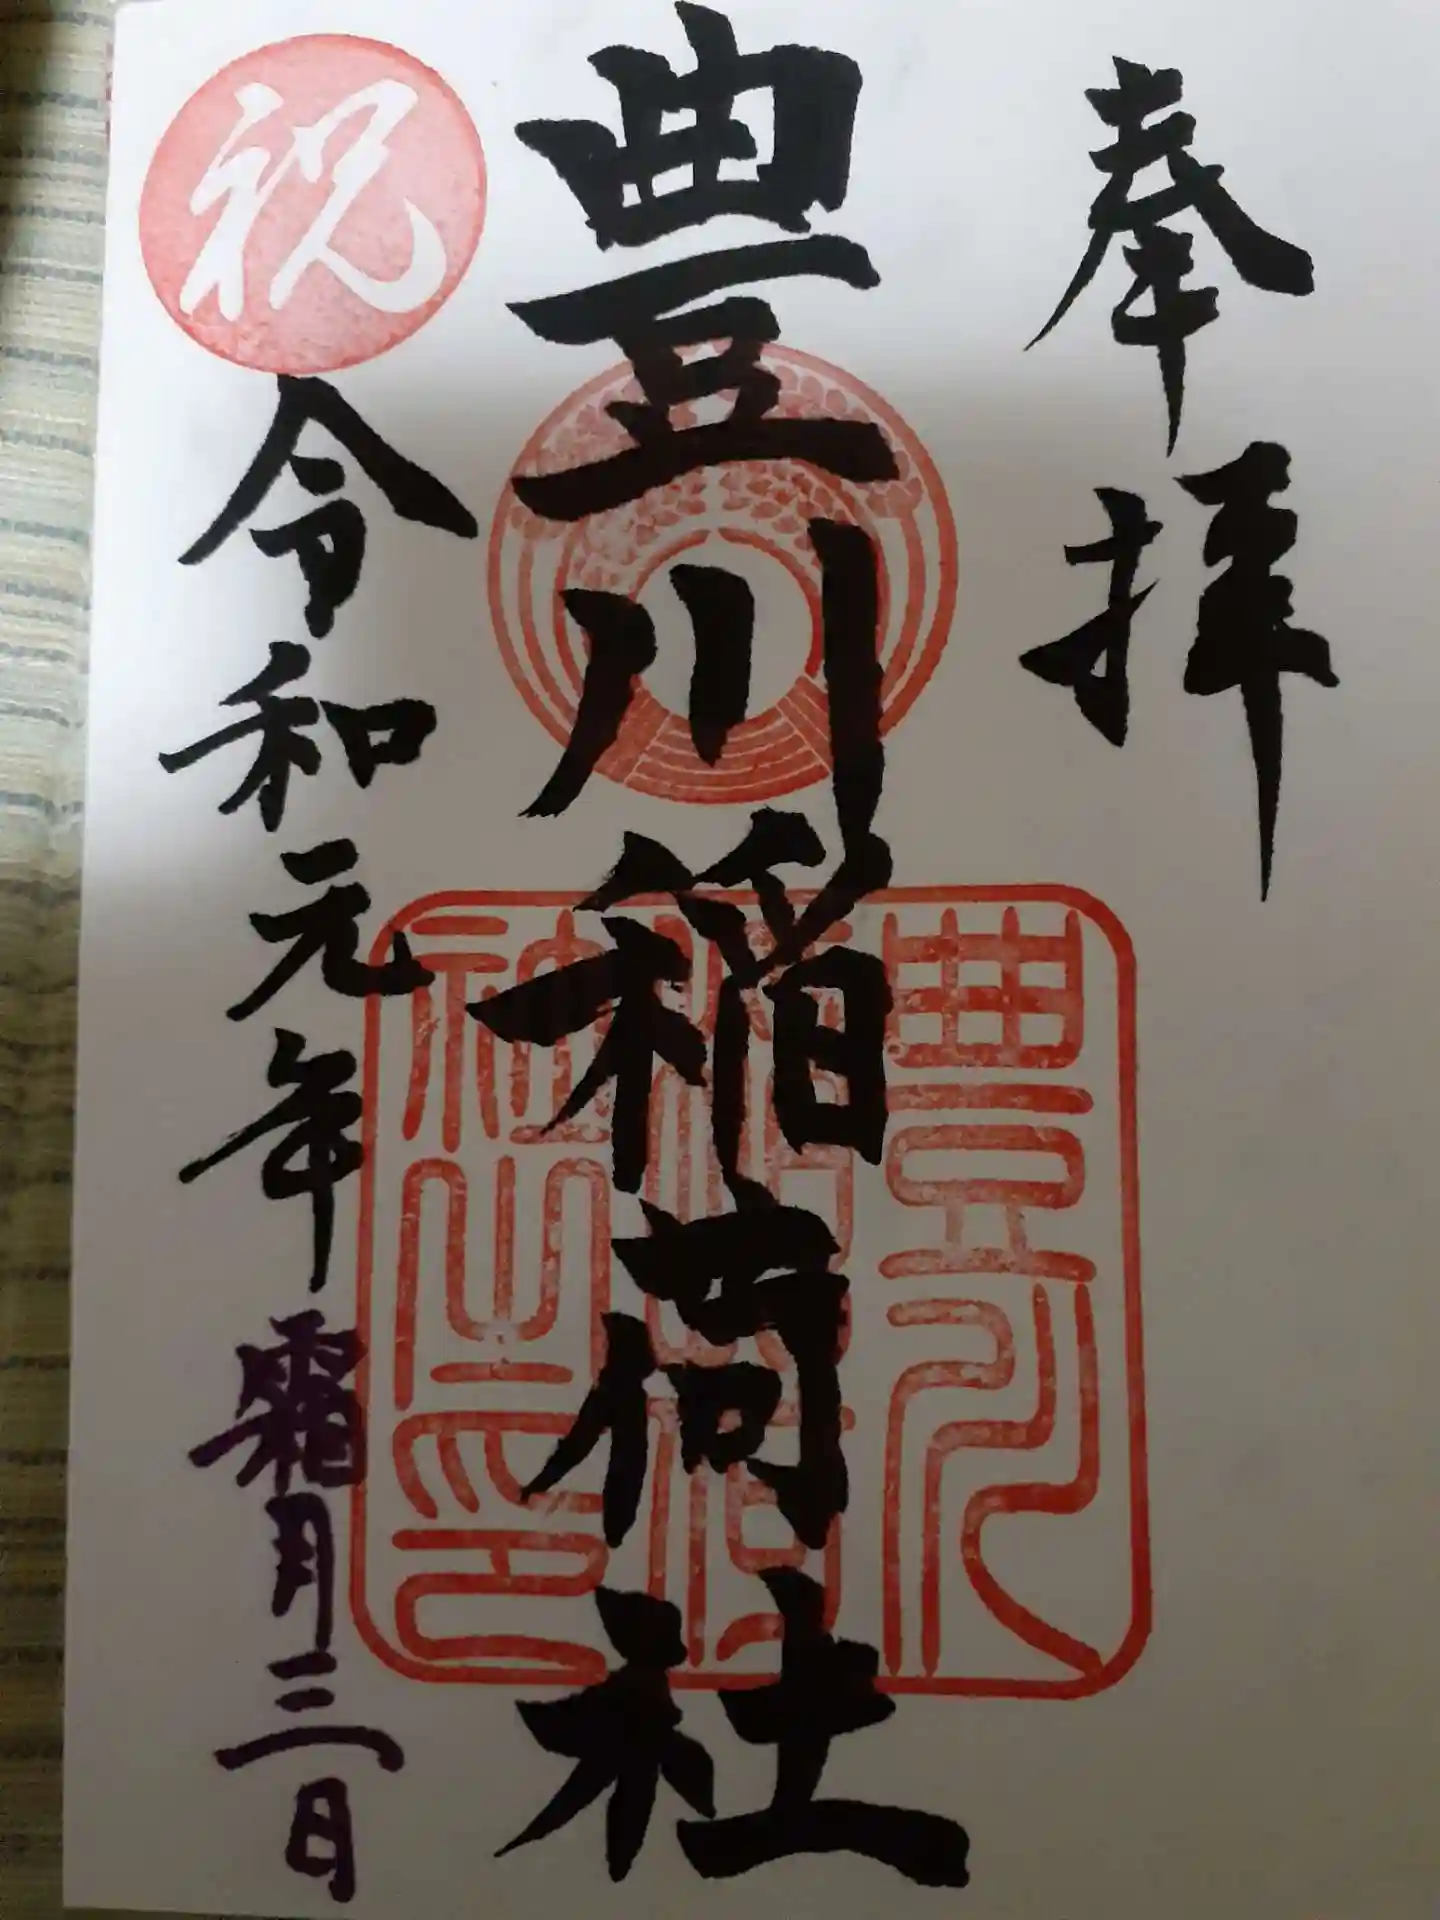 奉拝
豊川稲荷社
豊川稲荷神社之印
祝
令和元年霜月三日